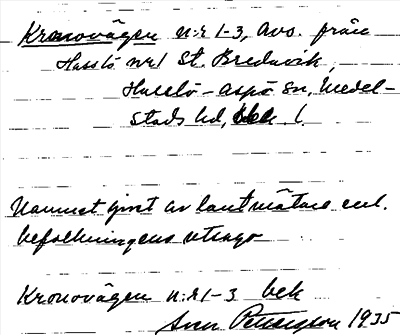 Kronovägen n:r 1-3, Avs. från
Hasslö nr 1 St. Bredavik,
Hasslö-aspö sn, Medel-
stads hd, Blek. l.
Namnet givet av lantmätare enl.
befolkningens utsago
Kronovägen n:r 1-3 bek
Sven Pettersson 1935